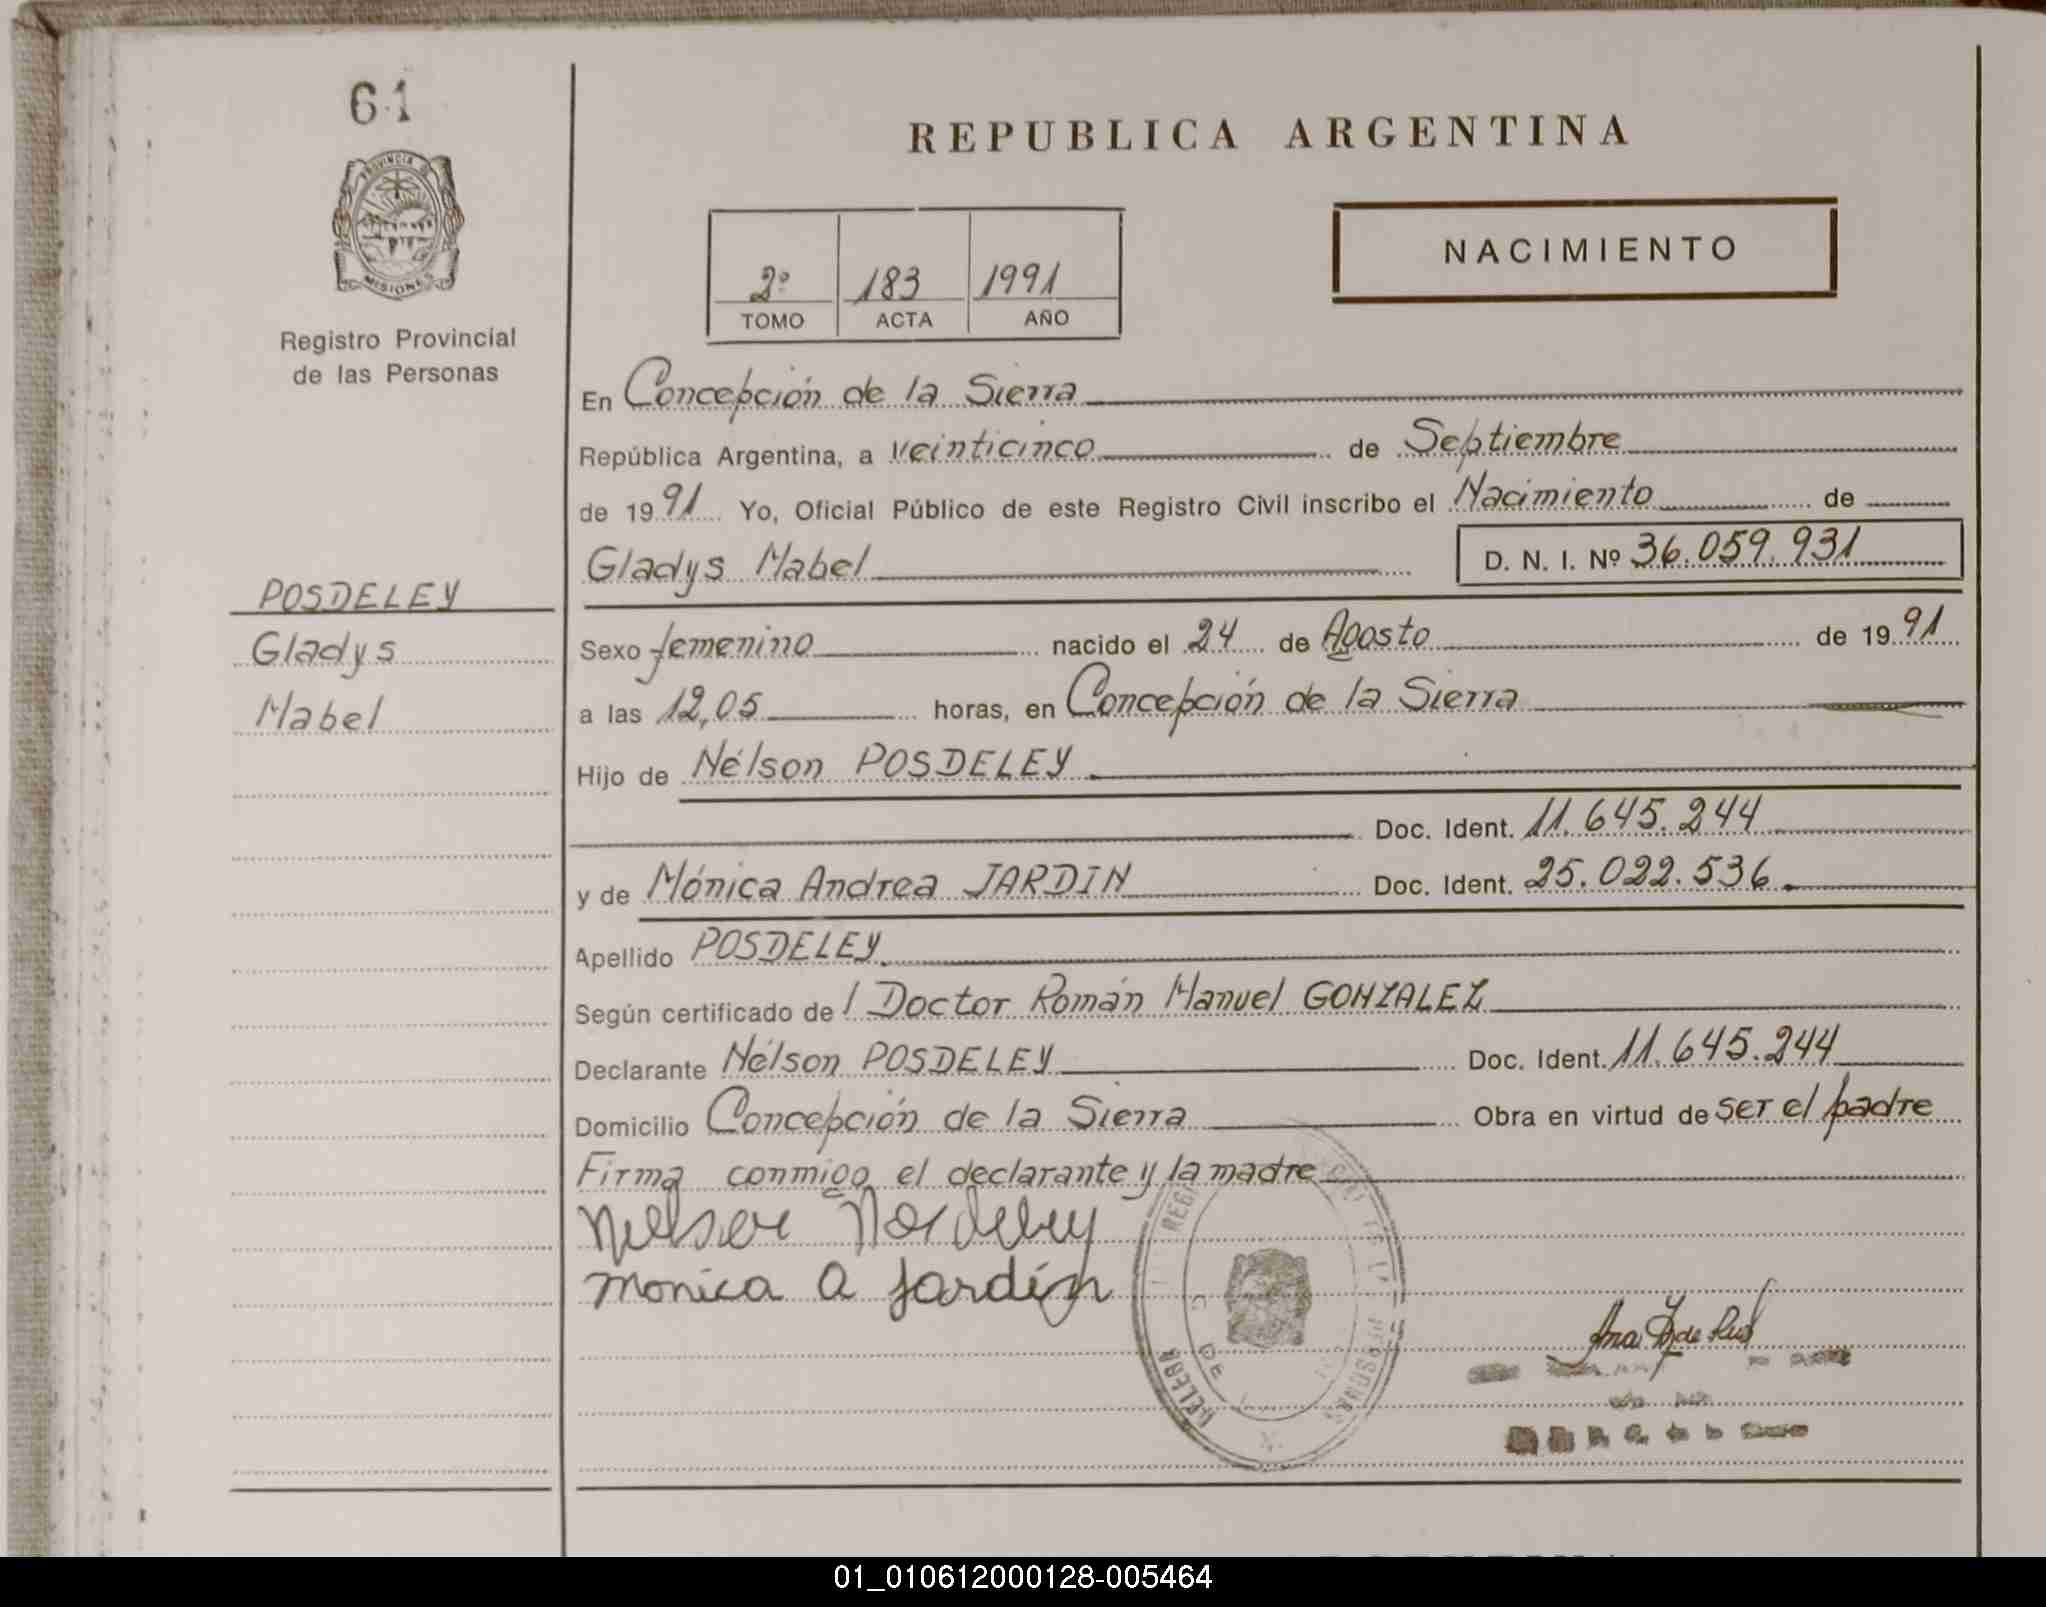 61
PROVINCIA DE
MISIONES
Registro Provincial
de las Personas
POSDELEY
Gladys
Mabel
REPUBLICA ARGENTINA
NACIMIENTO
2º 183 1991
TOMO ACTA AÑO
En Concepción de la Sierra
República Argentina, a veinticinco de Septiembre
de 1991 Yo, Oficial Público de este Registro Civil inscribo el Nacimiento de
Gladys Mabel D. N. I. Nº 36.059.931
Sexo femenino nacido el 24 de Agosto de 1991
a las 12,05 horas, en Concepción de la Sierra
Hijo de Nélson POSDELEY
Doc. Ident. 11.645.244
y de Mónica Andrea JARDIN Doc. Ident. 25.022.536
Apellido POSDELEY
Según certificado de l Doctor Román Manuel GONZALEZ
Declarante Nélson POSDELEY Doc. Ident. 11.645.244
Domicilio Concepción de la Sierra Obra en virtud de ser el padre
Firma conmigo el declarante y la madre
monica a Jardín
01_010612000128-005464